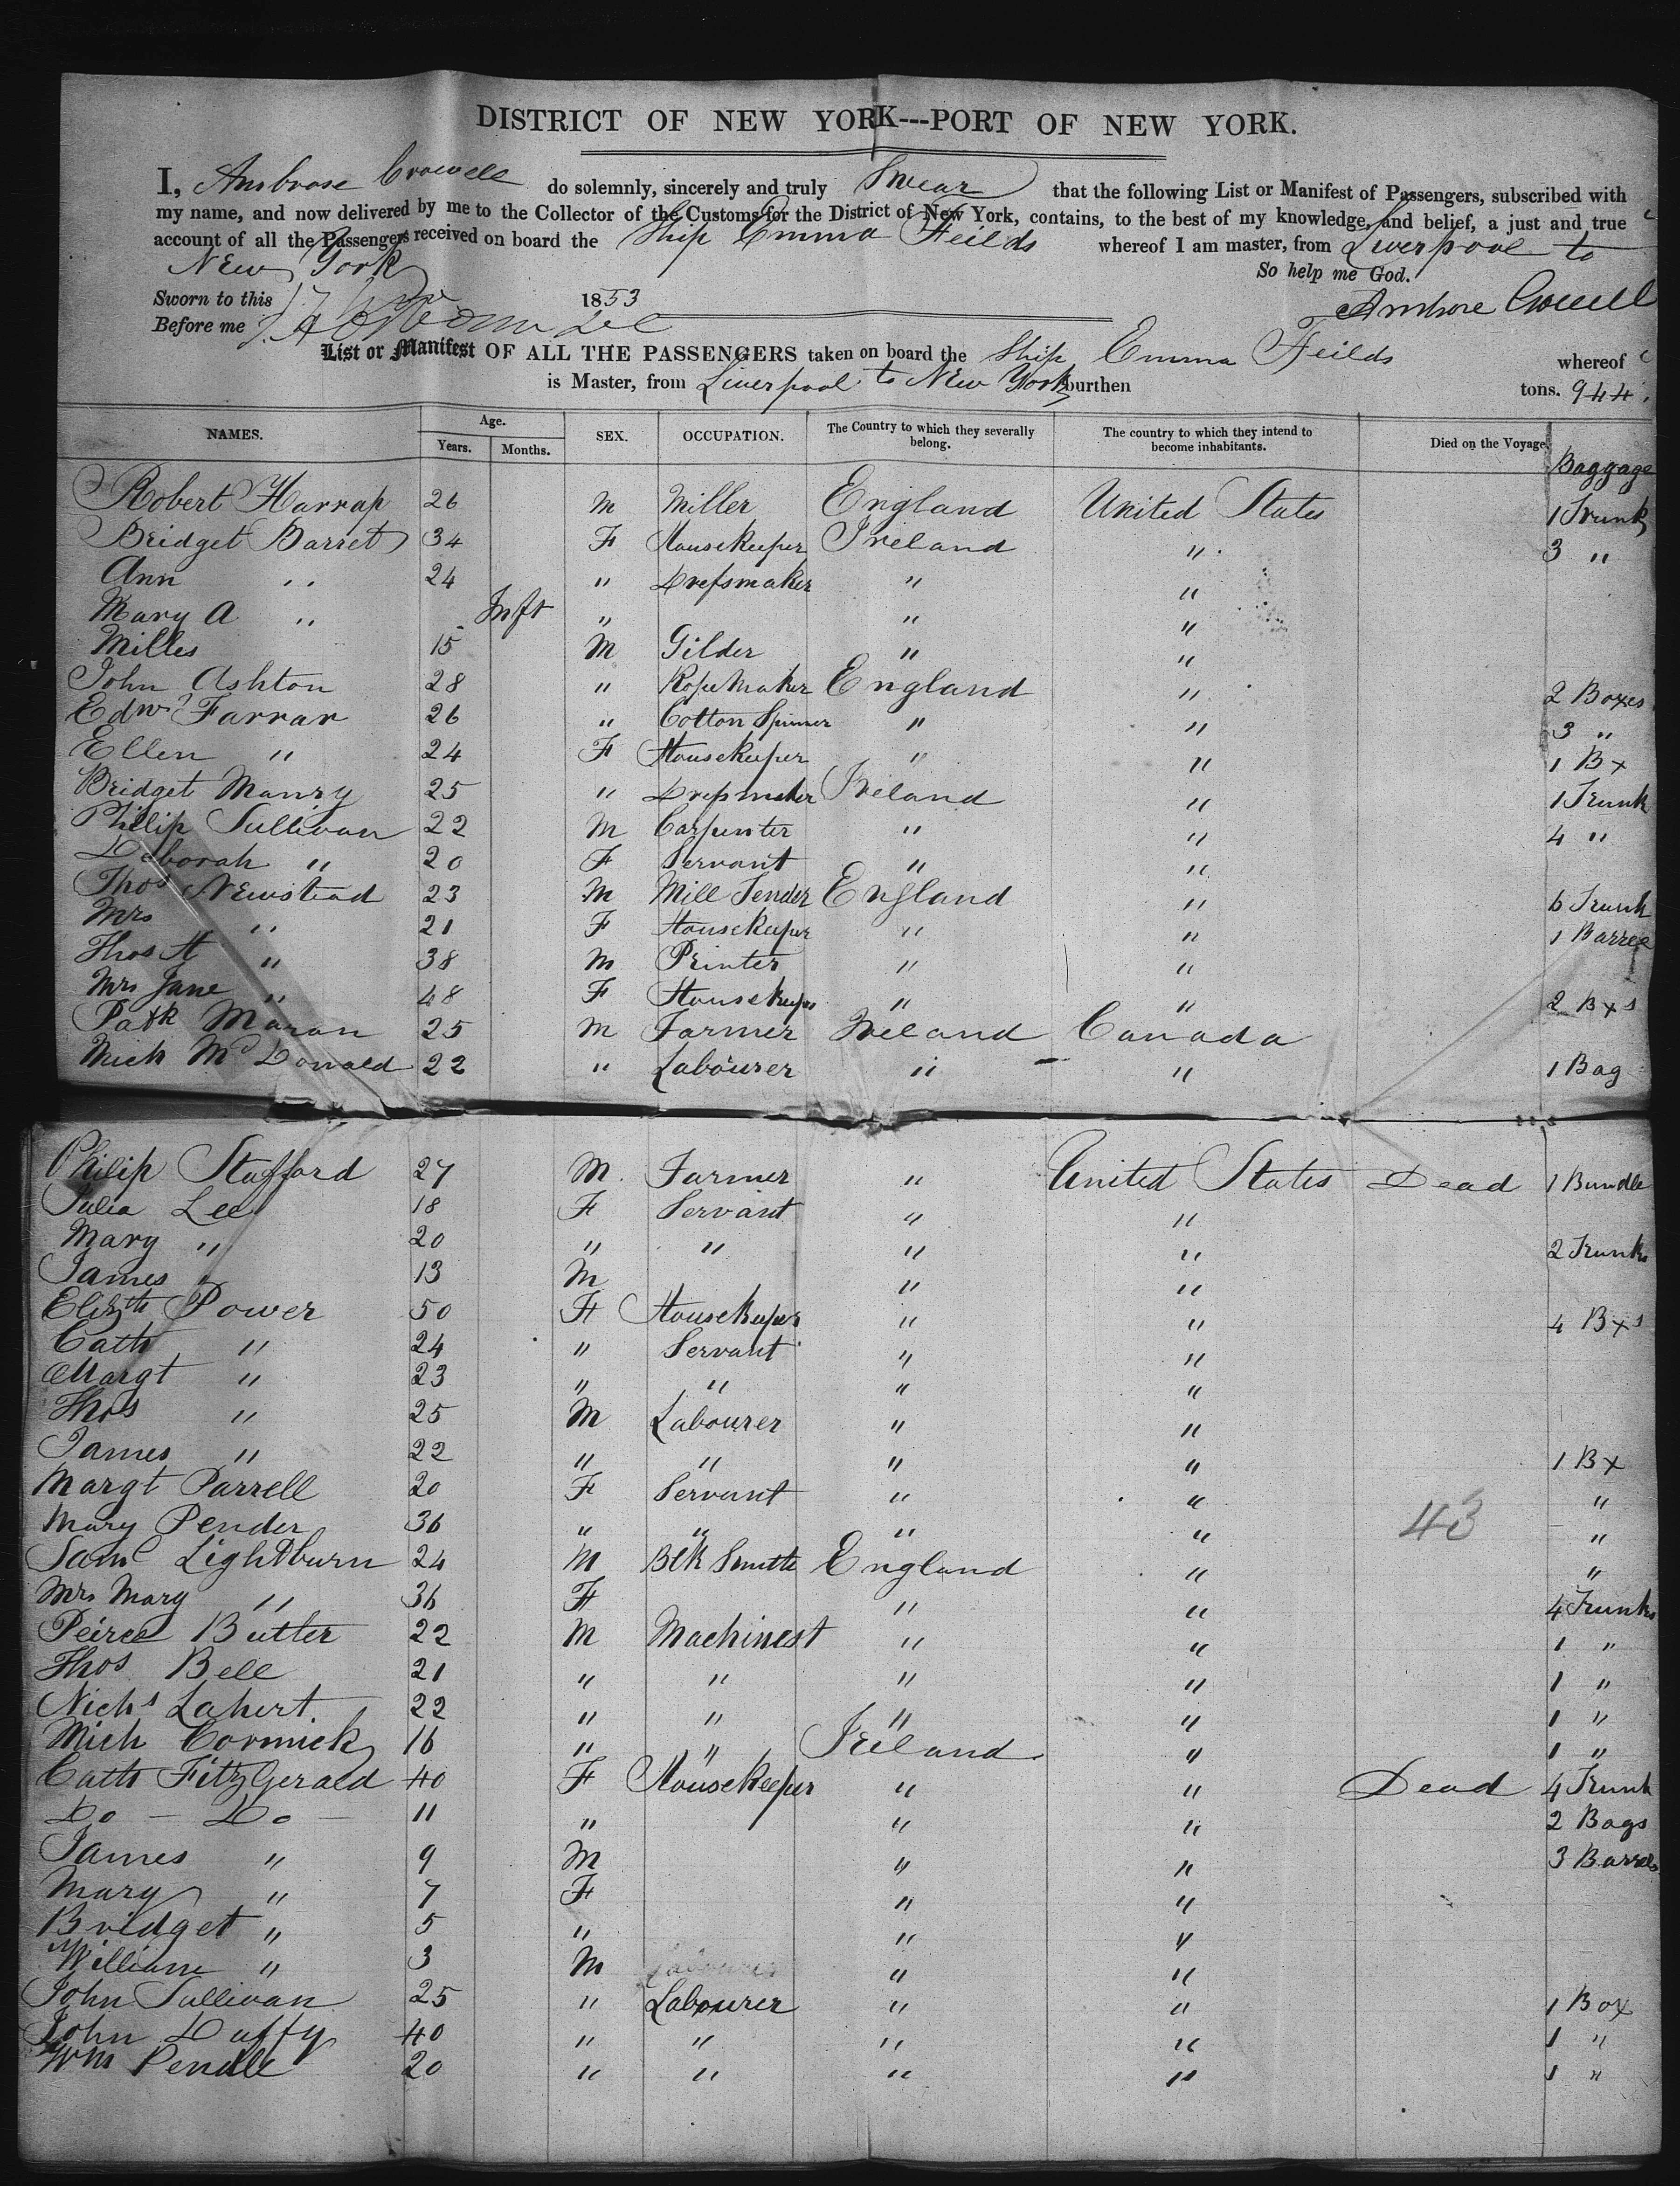 DISTRICT OF NEW YORK---PORT OF NEW YORK.
I, Ambrose Crowell do solemnly, sincerely and truly Swear that the following List or Manifest of Passengers, subscribed with
my name, and now delivered by me to the Collector of the Customs for the District of New York, contains, to the best of my knowledge, and belief, a just and true
account of all the Passengers received on board the Ship Emma Feilds whereof I am master, from Liverpool to
New York
So help me God.
Sworn to this 1853
Ambrose Crowell
Before me
List or Manifest OF ALL THE PASSENGERS taken on board the Ship Emma Feilds whereof
is Master, from Liverpool to New York burthen tons. 944
NAMES. Age. Years. Months. SEX. OCCUPATION. The Country to which they severally belong. The country to which they intend to become inhabitants. Died on the Voyage. Baggage
Robert Harrap 26 M Miller England United States 1 Trunk
Bridget Barret 34 F Housekeeper Ireland " 3 "
Ann " 24 " Dressmaker " "
Mary A " Inft " " "
Milles 15 M Gilder " "
John Ashton 28 " Rope Maker England " 2 Boxes
Edwd Farrar 26 " Cotton Spinner " " 3 "
Ellen " 24 F Housekeeper " " 1 Bx
Bridget 25 " Dressmaker Ireland " 1 Trunk
Philip Sullivan 22 M Carpenter " " 4 "
Deborah " 20 F Servant " "
Thos Newstead 23 M Mill Tender England " 6 Trunk
Mrs " 21 F Housekeeper " " 1 Barrel
Thos H " 38 M Printer " "
Mrs Jane " 48 F Housekeeper " " 2 Bxs
Patk Moran 25 M Farmer Ireland Canada
Mich McDonald 22 " Labourer " " 1 Bag
Philip Stafford 27 M Farmer " United States Dead 1 Bundle
Julia Lee 18 F Servant " "
Mary " 20 " " " " 2 Trunks
James " 13 M " "
Elizth Power 50 F Housekeeper " " 4 Bxs
Cath " 24 " Servant " "
Margt " 23 " " " "
Thos " 25 M Labourer " "
James " 22 " " " " 1 Bx
Margt Parrell 20 F Servant " " "
Mary Pender 36 " " " " 43 "
Saml Lightburn 24 M Blk Smith England " "
Mrs Mary " 36 F " " 4 Trunks
Peirce Butler 22 M Machinest " " 1 "
Thos Bell 21 " " " " 1 "
Nichs Lahert. 22 " " " " 1 "
Mich Cormick 16 " " Ireland " 1 "
Cath FitzGerald 40 F Housekeeper " " Dead 4 Trunk
Do - Do - 11 " " " 2 Bags
James " 9 M " " 3 Barrels
Mary " 7 F " "
Bridget " 5 " " "
William " 3 M Labourer " "
John Sullivan 25 " Labourer " " 1 Box
John Duffy 40 " " " " 1 "
Wm Pendle 20 " " " " 1 "